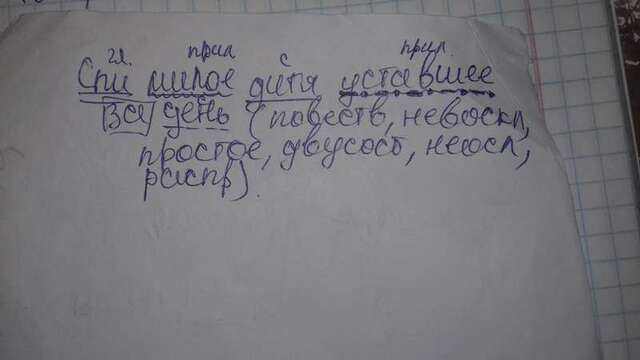 гл. прил с прил.
Спи милое дитя уставшее
Вся день (повеств, невоскл,
простое, двусост, неосл,
распр).